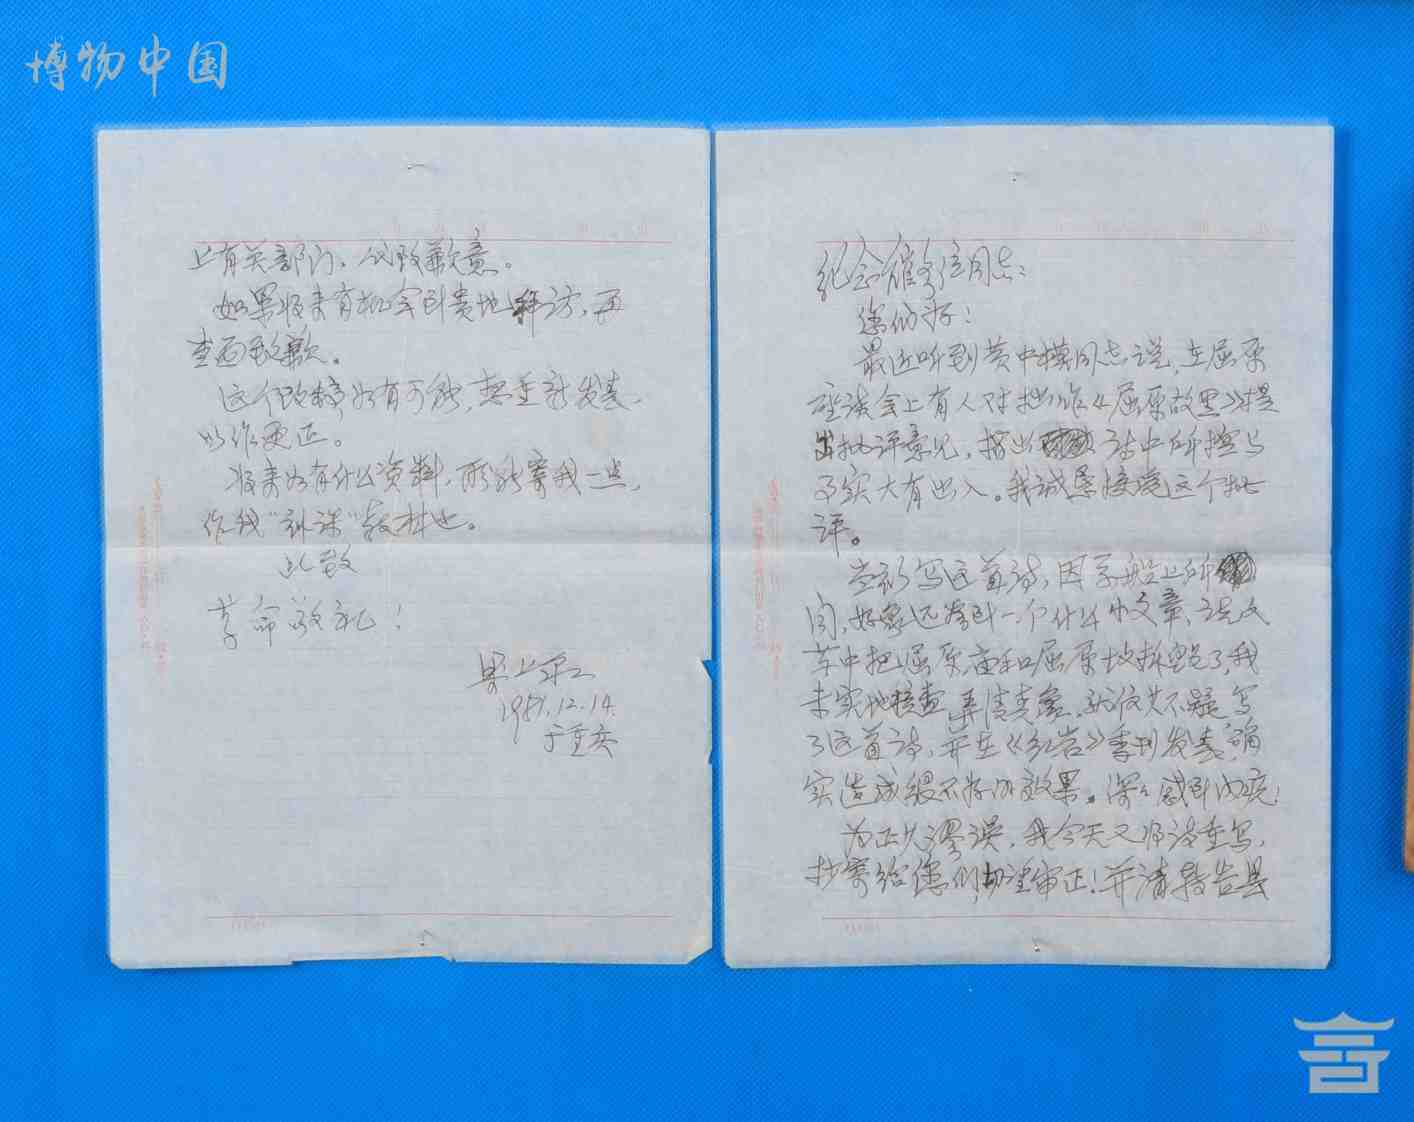 博物中国
纪念馆负责同志：
您们好！
最近听到黄中模同志说，在屈原
座谈会上有人对拙作《屈原故里》提
出批评意见，指出诗中所控与
事实大有出入。我诚恳接受这个批
评。
当初写这首诗，因系船上所
闻，好象还看到一个什么小文章，说文
革中把屈原庙和屈原坡拆毁了，我
未实地检查，弄清真象，就信其不疑，写
了这首诗，并在《红岩》季刊发表，确
实造成很不好的效果。深深感到内疚！
为正其谬误，我今天又将诗重写，
抄寄给您们，切望审正！并请转告县
上有关部门、代致歉意。
如果将来有机会到贵地拜访，再
当面致歉。
这个改稿如有可能，想重新发表，
以作更正。
将来如有什么资料，盼能寄我一些，
作我"补课"教材也。
此致
革命敬礼！
梁上泉
1981.12.14.
于重庆